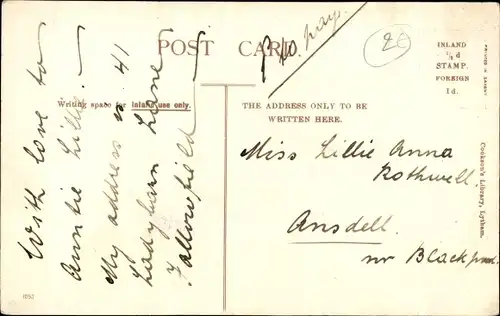 POST CARD.
P.O. Nay.
20
INLAND
½d
STAMP.
FOREIGN
1d.
PRINTED IN SAXONY
Writing space for inland use only.
THE ADDRESS ONLY TO BE
WRITTEN HERE.
With love to
Auntie Lillie.
My address is 41
Ladybarn Lane
Fallowfield
Miss Lillie Anna
Rothwell,
Ansdell.
nr Blackpool.
Cookson's Library, Lytham.